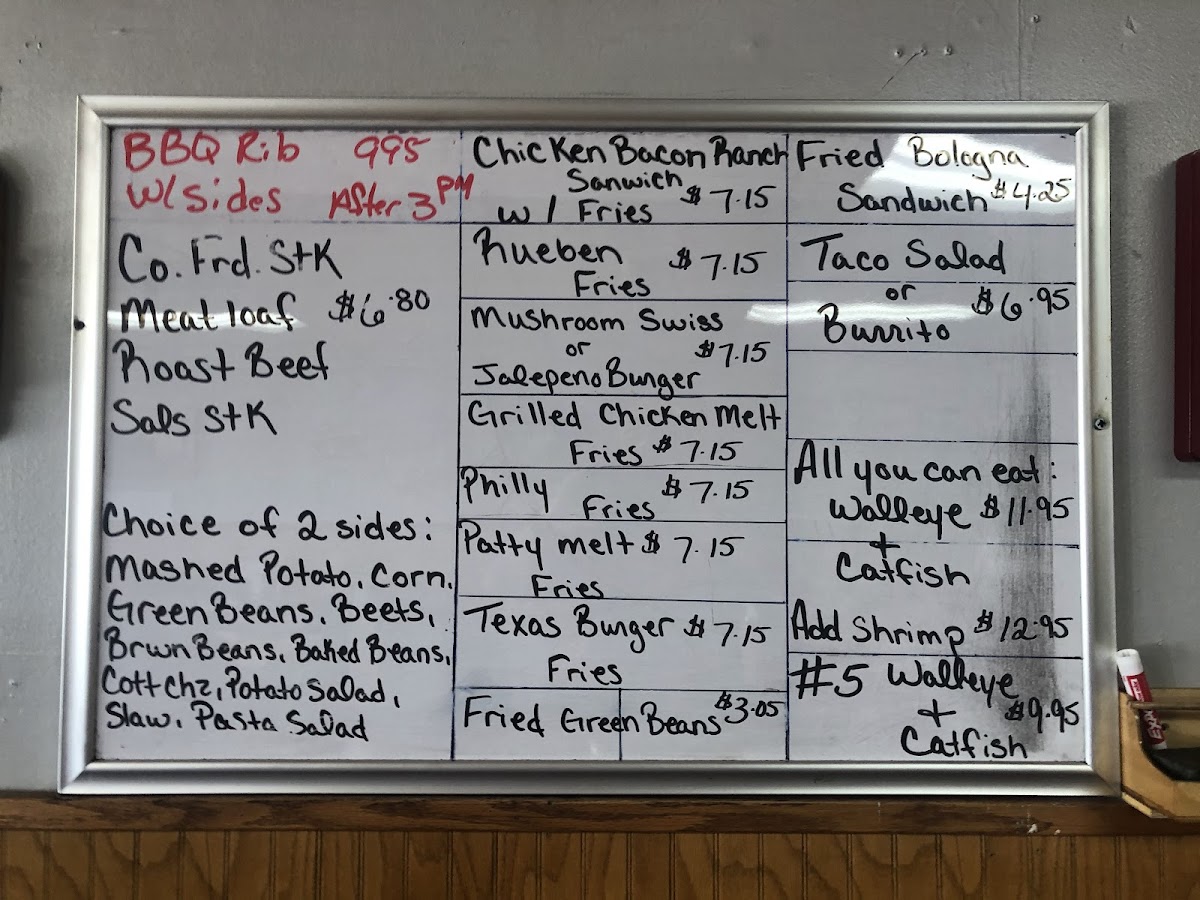 BBQ Rib 995
W/Sides After 3 PM
Co. Frd. StK
Meat loaf $6.80
Roast Beef
Sals StK
Choice of 2 sides:
Mashed Potato, Corn,
Green Beans, Beets,
Brwn Beans, Baked Beans,
Cott chz, Potato Salad,
Slaw, Pasta Salad
Chicken Bacon Ranch
Sanwich $7.15
w/ Fries
Rueben $7.15
Fries
Mushroom Swiss
or $7.15
Jalepeno Burger
Grilled Chicken Melt
Fries $7.15
Philly $7.15
Fries
Patty melt $7.15
Fries
Texas Burger $7.15
Fries
Fried Green Beans $3.05
Fried Bologna
Sandwich $4.25
Taco Salad
or $6.95
Burrito
All you can eat:
Walleye $11.95
+
Catfish
Add Shrimp $12.95
#5 Walleye
+ $9.95
Catfish